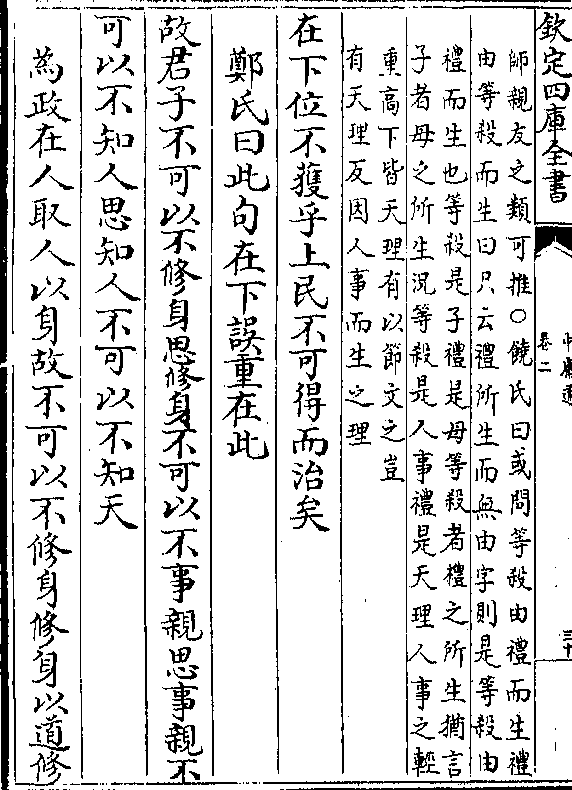 欽定四庫全書
中庸通
卷二
三十
師親友之類可推○饒氏曰或問等殺由禮而生禮
由等殺而生曰只云禮所生而無由字則是等殺由
禮而生也等殺是子禮是母等殺者禮之所生猶言
子者母之所生況等殺是人事禮是天理人事之輕
重高下皆天理有以節文之豈
有天理反因人事而生之理
在下位不獲乎上民不可得而治矣
鄭氏曰此句在下誤重在此
故君子不可以不修身思修身不可以不事親思事親不
可以不知人思知人不可以不知天
為政在人取人以身故不可以不修身修身以道修